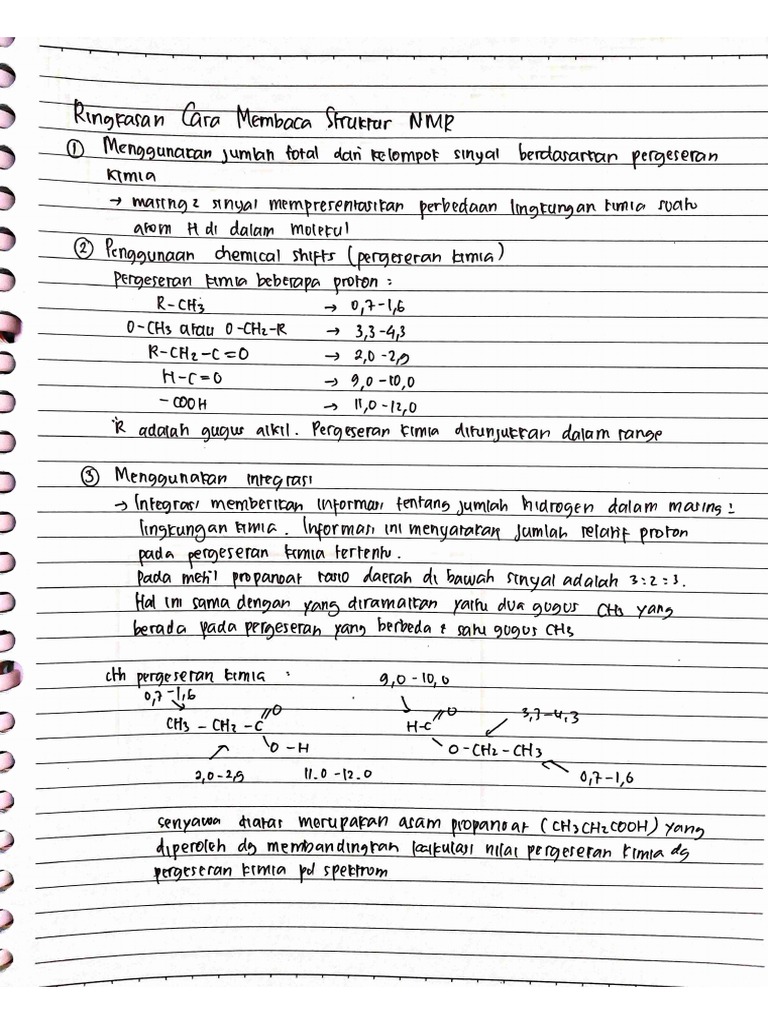 Ringkasan Cara Membaca Struktur NMR
① Menggunakan jumlah total dari kelompok sinyal berdasarkan pergeseran
kimia
→ masing2 sinyal mempresentasikan perbedaan lingkungan kimia suatu
atom H di dalam molekul
② Penggunaan chemical shifts (pergeseran kimia)
Pergeseran kimia beberapa proton :
R-CH3 → 0,7-1,6
O-CH3 atau O-CH2-R → 3,3-4,3
R-CH2-C=O → 2,0-2,5
H-C=O → 9,0-10,0
-COOH → 11,0-12,0
*R adalah gugus alkil. Pergeseran kimia ditunjukkan dalam range
③ Menggunakan integrasi
→ Integrasi memberikan informasi tentang jumlah hidrogen dalam masing2
lingkungan kimia. Informasi ini menyatakan jumlah relatif proton
pada pergeseran kimia tertentu.
Pada metil propanoat rasio daerah di bawah sinyal adalah 3:2=3.
Hal ini sama dengan yang diramalkan yaitu dua gugus CH3 yang
berada pada pergeseran yang berbeda & satu gugus CH3
cth pergeseran kimia :
0,7-1,6
CH3 - CH2 - C
O
O-H
2,0-2,5
11.0-12.0
9,0-10,0
H-C
O
O-CH2-CH3
3,3-4,3
0,7-1,6
senyawa diatas merupakan asam propanoat (CH3CH2COOH) yang
diperoleh dg membandingkan kalkulasi nilai pergeseran kimia dg
pergeseran kimia pd spektrum